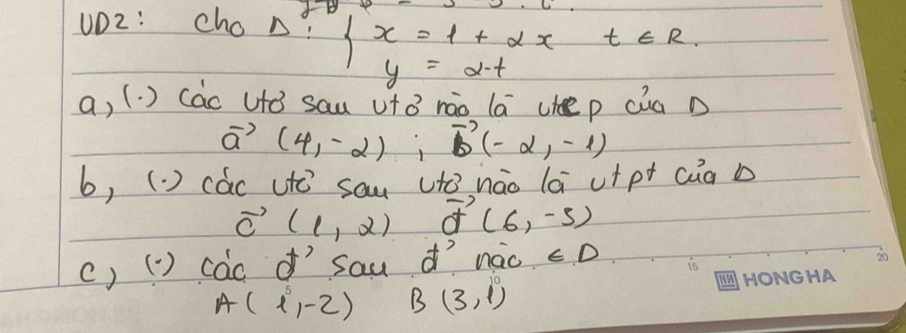 VD2: Cho Δ: { x = 1 + 2x t ∈ R.
y = 2-t
a, (.) các vtơ sau vtơ nào là vtcp của Δ
a⃗ (4, -2) ; b⃗ (-2, -1)
b, (.) các vtơ sau vtơ nào là vtpt của Δ
c⃗ (1, 2) d⃗ (6, -3)
c, (.) các đ' sau đ' nào ∈ D
A (1, -2) B (3, 1)
HH HONG HA
5 10 15 20